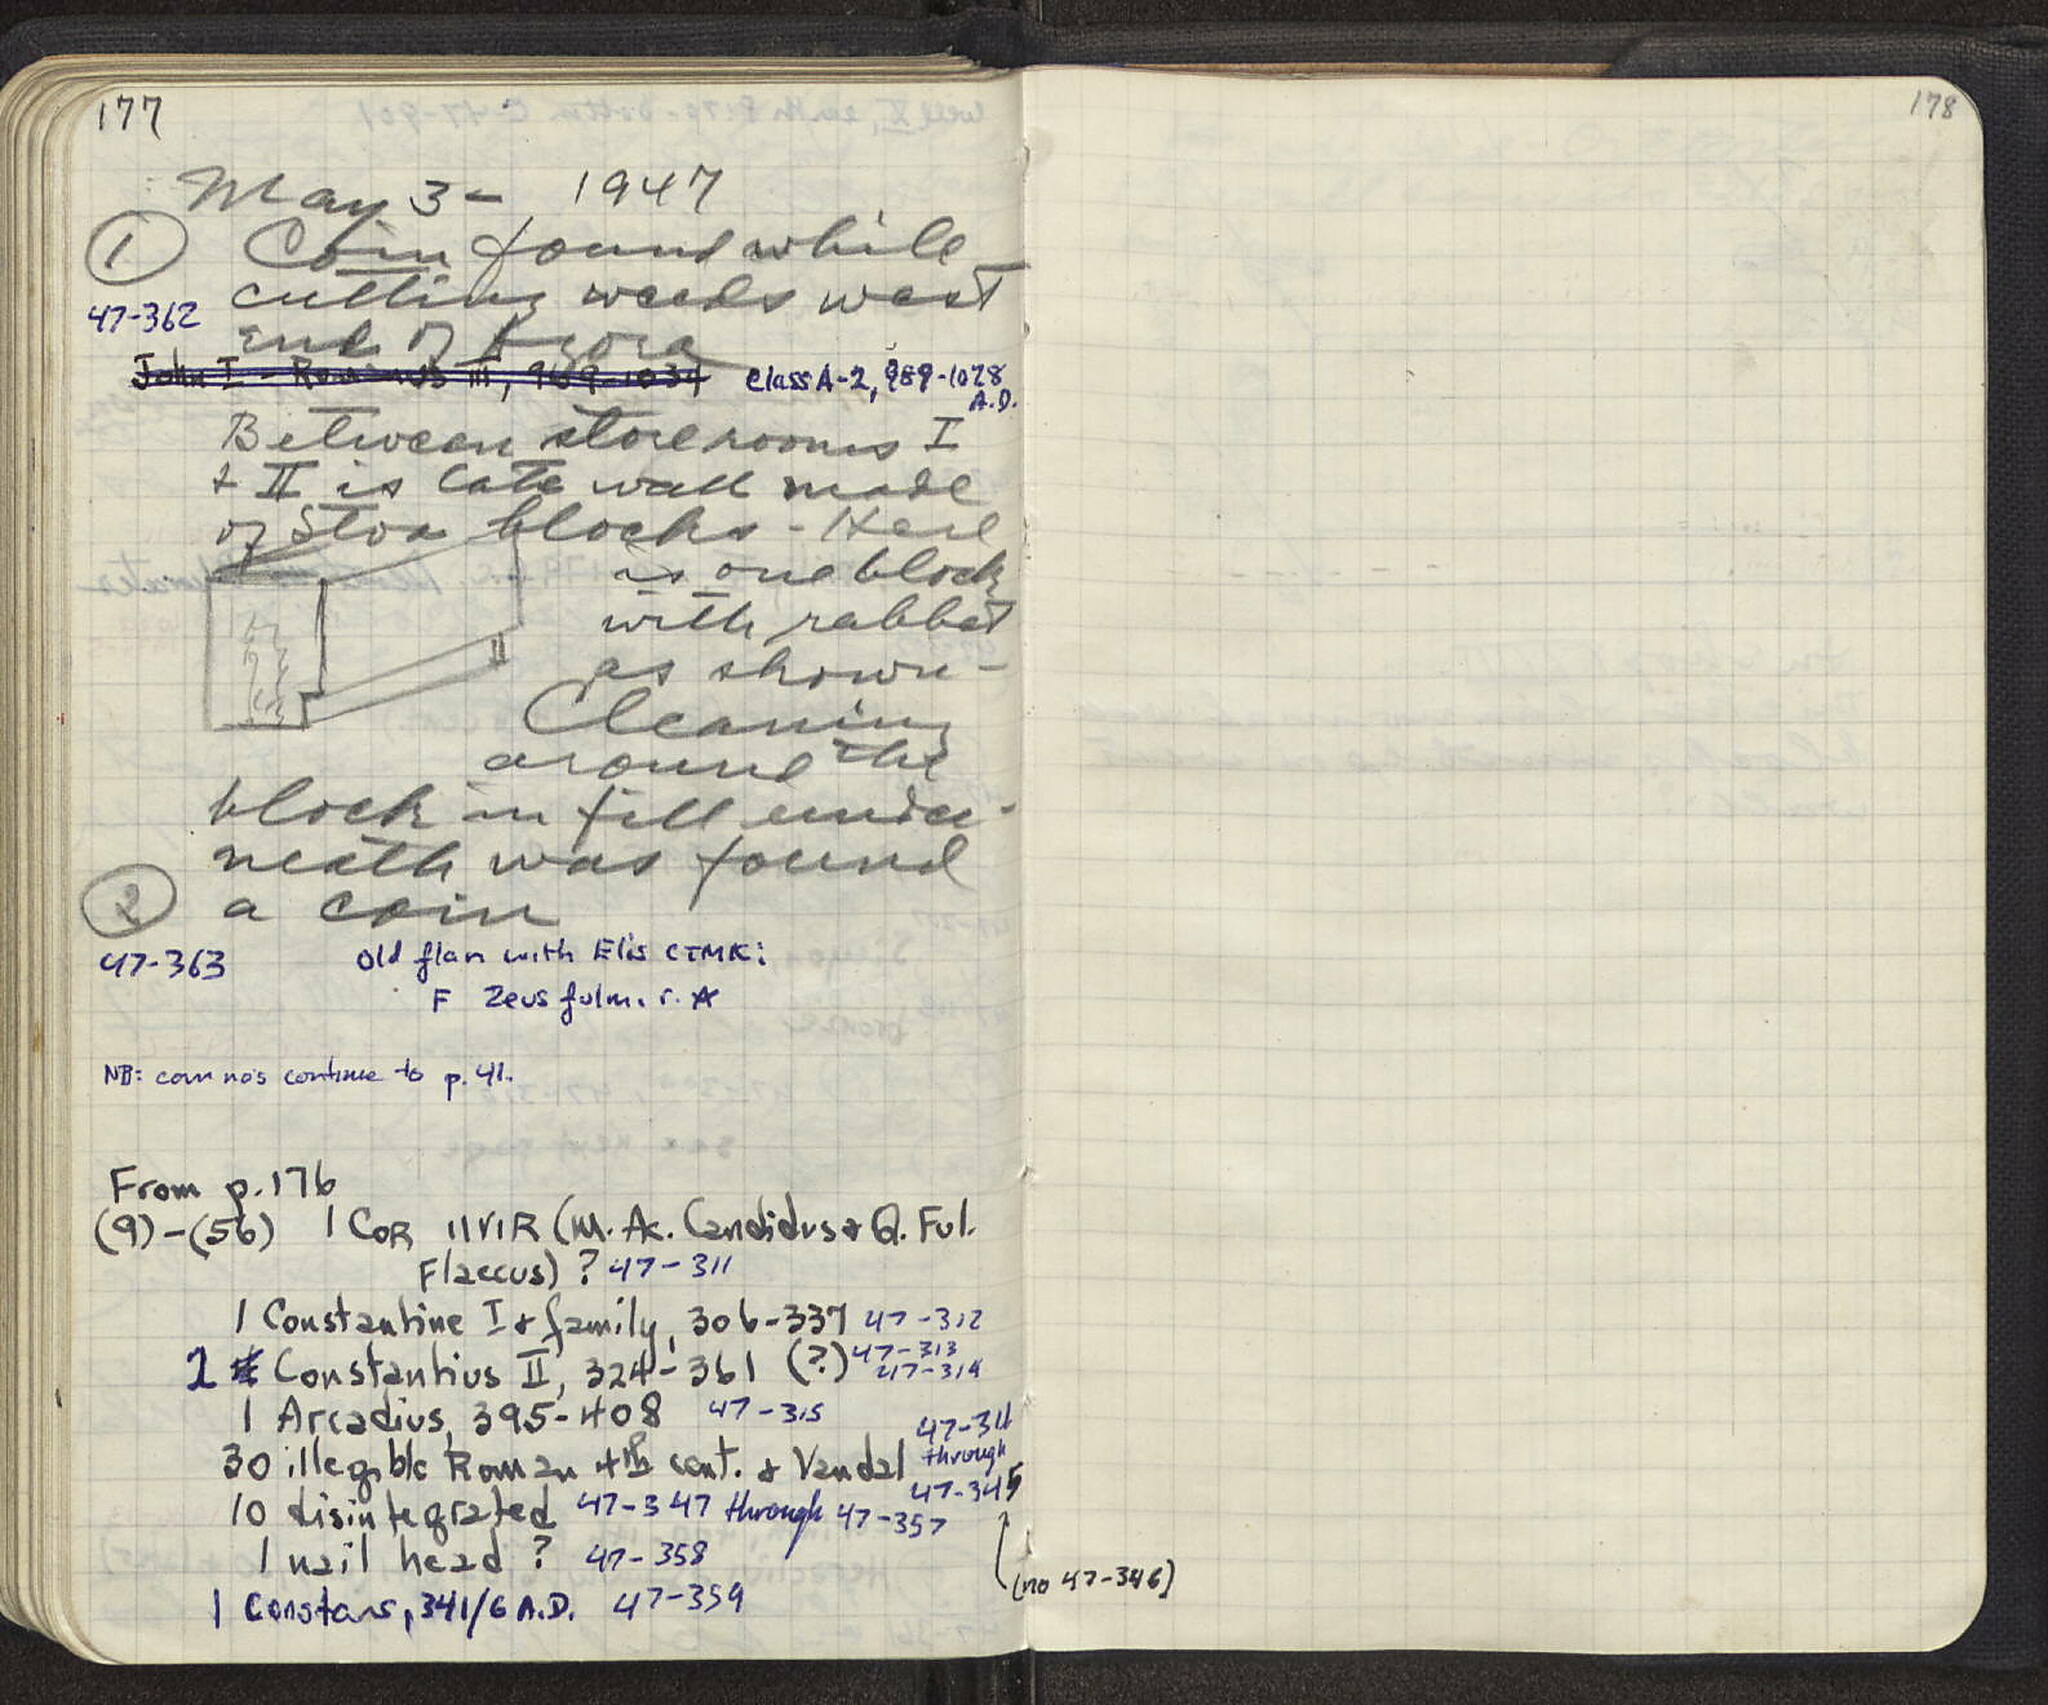 177
May 3 - 1947
① Coin found while
cutting weeds west
47-362
end of Agora
John I - Romanus III, 969-1034 Class A-2, 989-1028
A.D.
Between storerooms I
& II is late wall made
of Stoa blocks - Here
is one block
with rabbet
as shown -
Cleaning
around the
block in fill under-
neath was found
② a coin
47-363 Old flan with Elis CTMK:
F Zeus fulm. r. A
NB: coin nos continue to p. 41.
From p. 176
(9)-(56) 1 COR IIVIR (M. Ac. Candidus & Q. Ful.
Flaccus) ? 47-311
1 Constantine I & family, 306-337 47-312
2 Constantius II, 324-361 (?) 47-313
47-314
1 Arcadius, 395-408 47-315
30 illegible Roman 4th cent. & Vandal 47-316
through
47-345
10 disintegrated 47-347 through 47-357
1 nail head ? 47-358
(no 47-346)
1 Constans, 341/6 A.D. 47-359
178